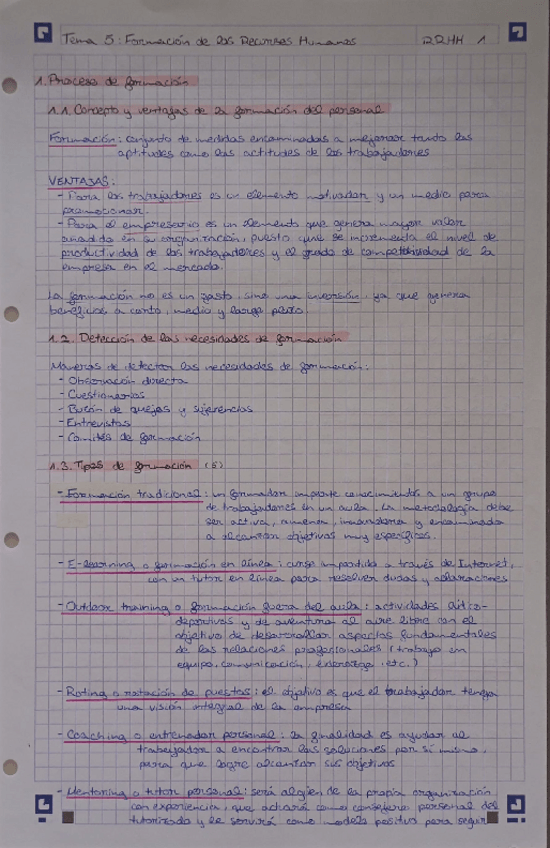 Tema 5: Formación de los Recursos Humanos RRHH 1
1. Proceso de formación
1.1. Concepto y ventajas de la formación del personal
Formación: conjunto de medidas encaminadas a mejorar tanto las
aptitudes como las actitudes de los trabajadores
VENTAJAS:
- Para los trabajadores es un elemento motivador y un medio para
promocionar.
- Para el empresario es un elemento que genera mayor valor
añadido en su organización, puesto que se incrementa el nivel de
productividad de los trabajadores y el grado de competitividad de la
empresa en el mercado.
La formación no es un gasto, sino una inversión, ya que genera
beneficios a corto, medio y largo plazo.
1.2. Detección de las necesidades de formación
Maneras de detectar las necesidades de formación:
- Observación directa
- Cuestionarios
- Buzón de quejas y sugerencias
- Entrevistas
- Comités de formación
1.3. Tipos de formación (5)
- Formación tradicional: un formador imparte conocimientos a un grupo
de trabajadores en un aula. La metodología debe
ser activa, amena, innovadora y encaminada
a alcanzar objetivos muy específicos.
- E-learning o formación en línea: curso impartido a través de Internet,
con un tutor en línea para resolver dudas y aclaraciones
- Outdoor training o formación fuera del aula: actividades lúdico-
deportivas y de aventura al aire libre con el
objetivo de desarrollar aspectos fundamentales
de las relaciones profesionales (trabajo en
equipo, comunicación, liderazgo, etc.)
- Roting o rotación de puestos: el objetivo es que el trabajador tenga
una visión integral de la empresa
- Coaching o entrenador personal: la finalidad es ayudar al
trabajador a encontrar las soluciones por sí mismo,
para que logre alcanzar sus objetivos
- Mentoring o tutor personal: será alguien de la propia organización
con experiencia, que actuará como consejero personal del
tutorizado y le servirá como modelo positivo para seguir